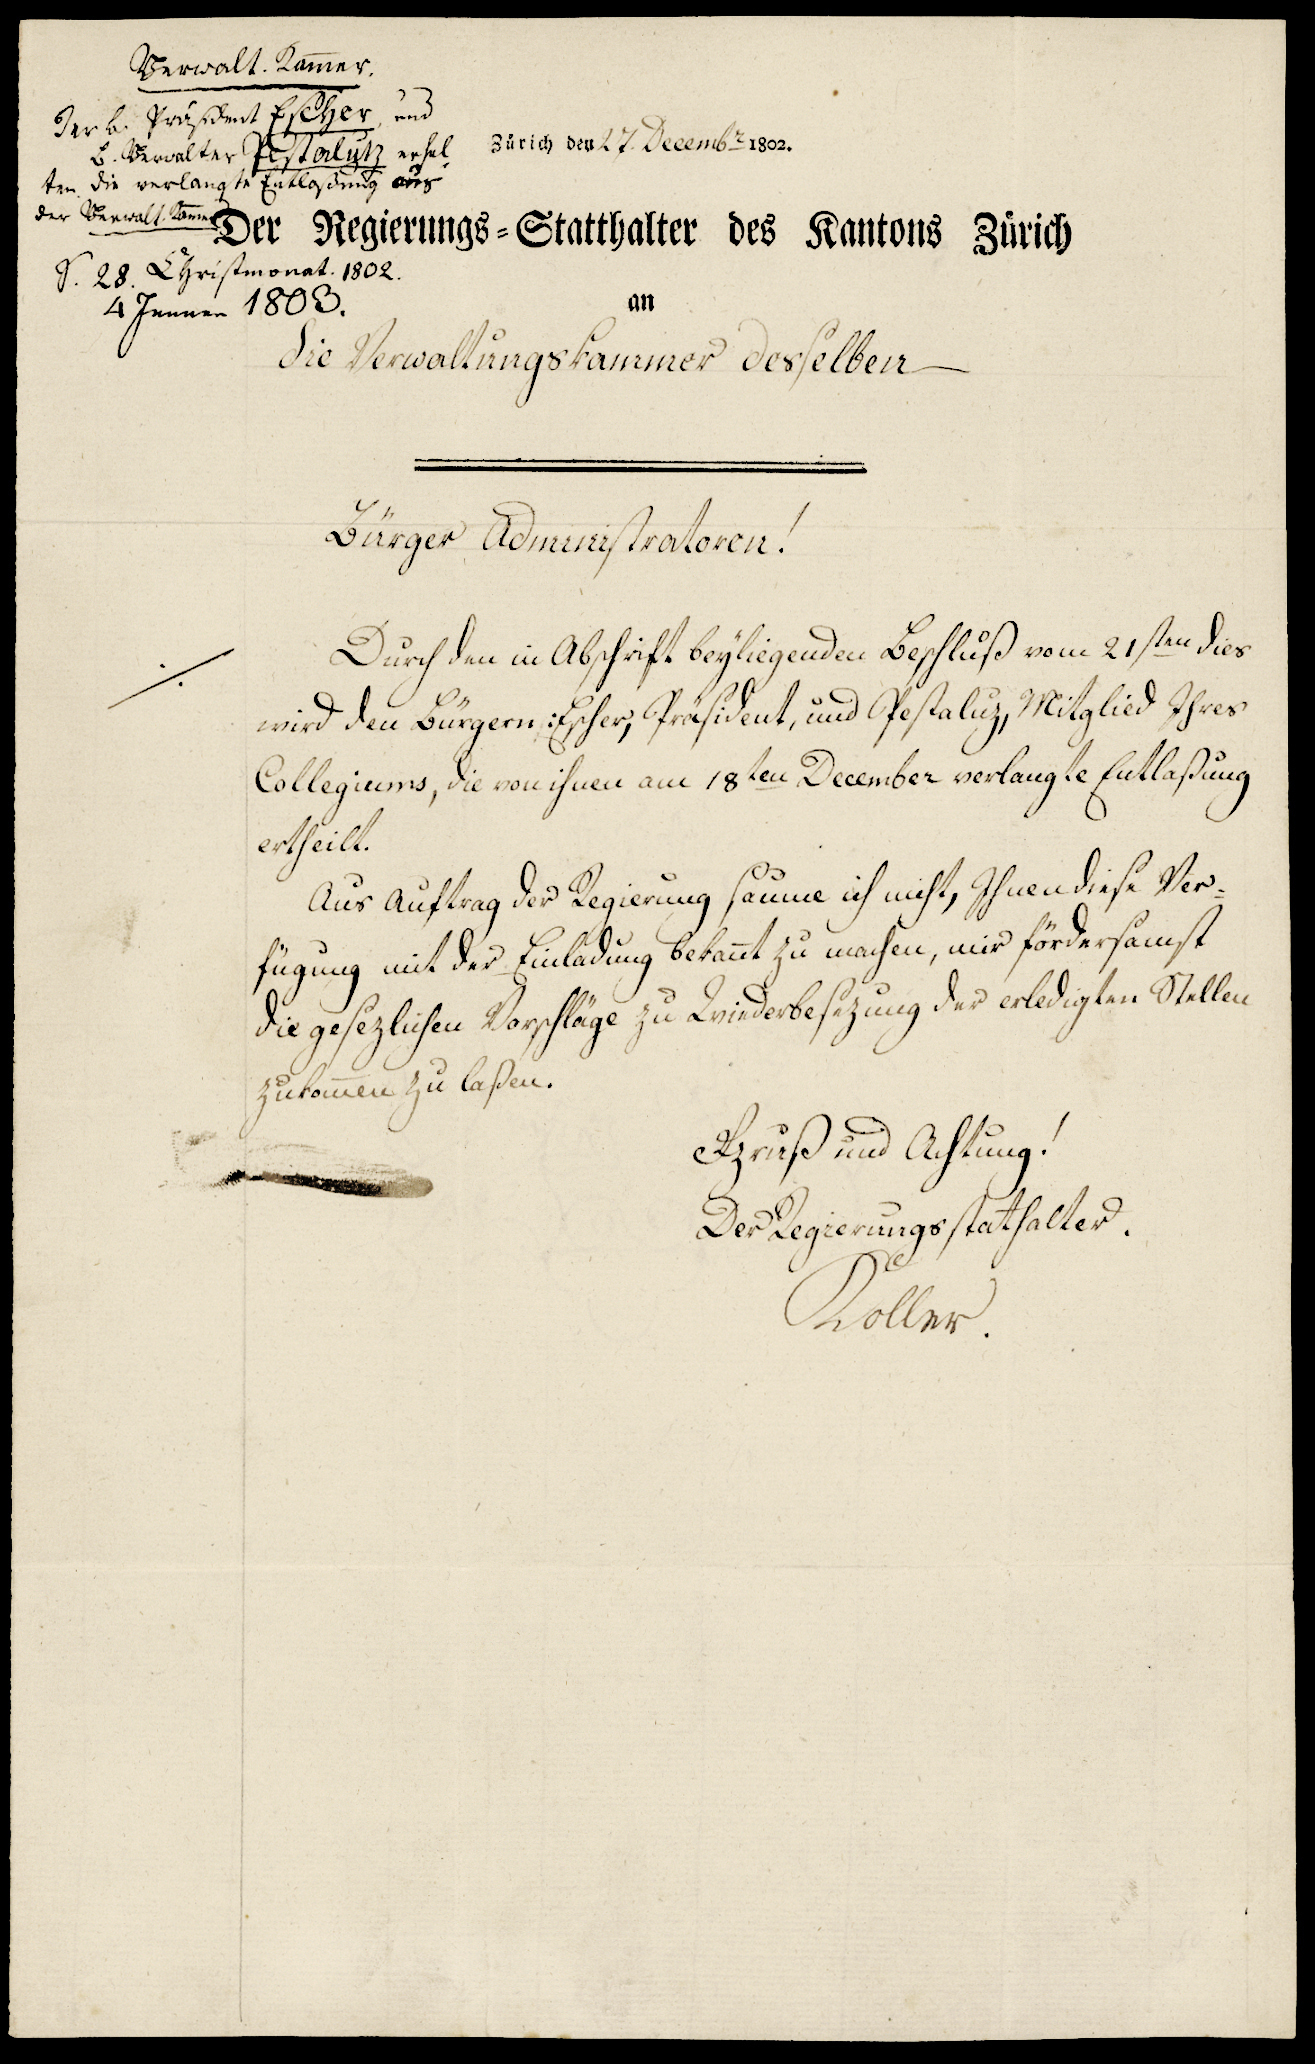 Verwalt. Kam̅er.
Der b. Präsident Escher, und
B. Verwalter Pestalutz erhal
ten die verlangte Entlaßung aus
der Verwalt. Kam̅er
S. 28. Christmonat. 1802.
4 Jenner 1803.
Zürich den 27. Decembr 1802.
Der Regierungs=Statthalter des Kantons Zürich
an
die Verwaltungskammer desselben
Bürger Administratoren!
./.
Durch den in Abschrift beyliegenden Beschluß vom 21sten dies
wird den Bürgern Escher, Präsident, und Pestaluz, Mitglied Ihres
Collegiums, die von ihnen am 18ten December verlangte Entlaßung
ertheilt.
Aus Auftrag der Regierung säume ich nicht, Ihnen diese Ver=
fügung mit der Einladung bekan̅t zu machen, mir fördersamst
die gesezlichen Vorschläge zu Wiederbesezung der erledigten Stellen
zukom̅en zu laßen.
Gruß und Achtung!
Der Regierungsstatthalter.
Koller.